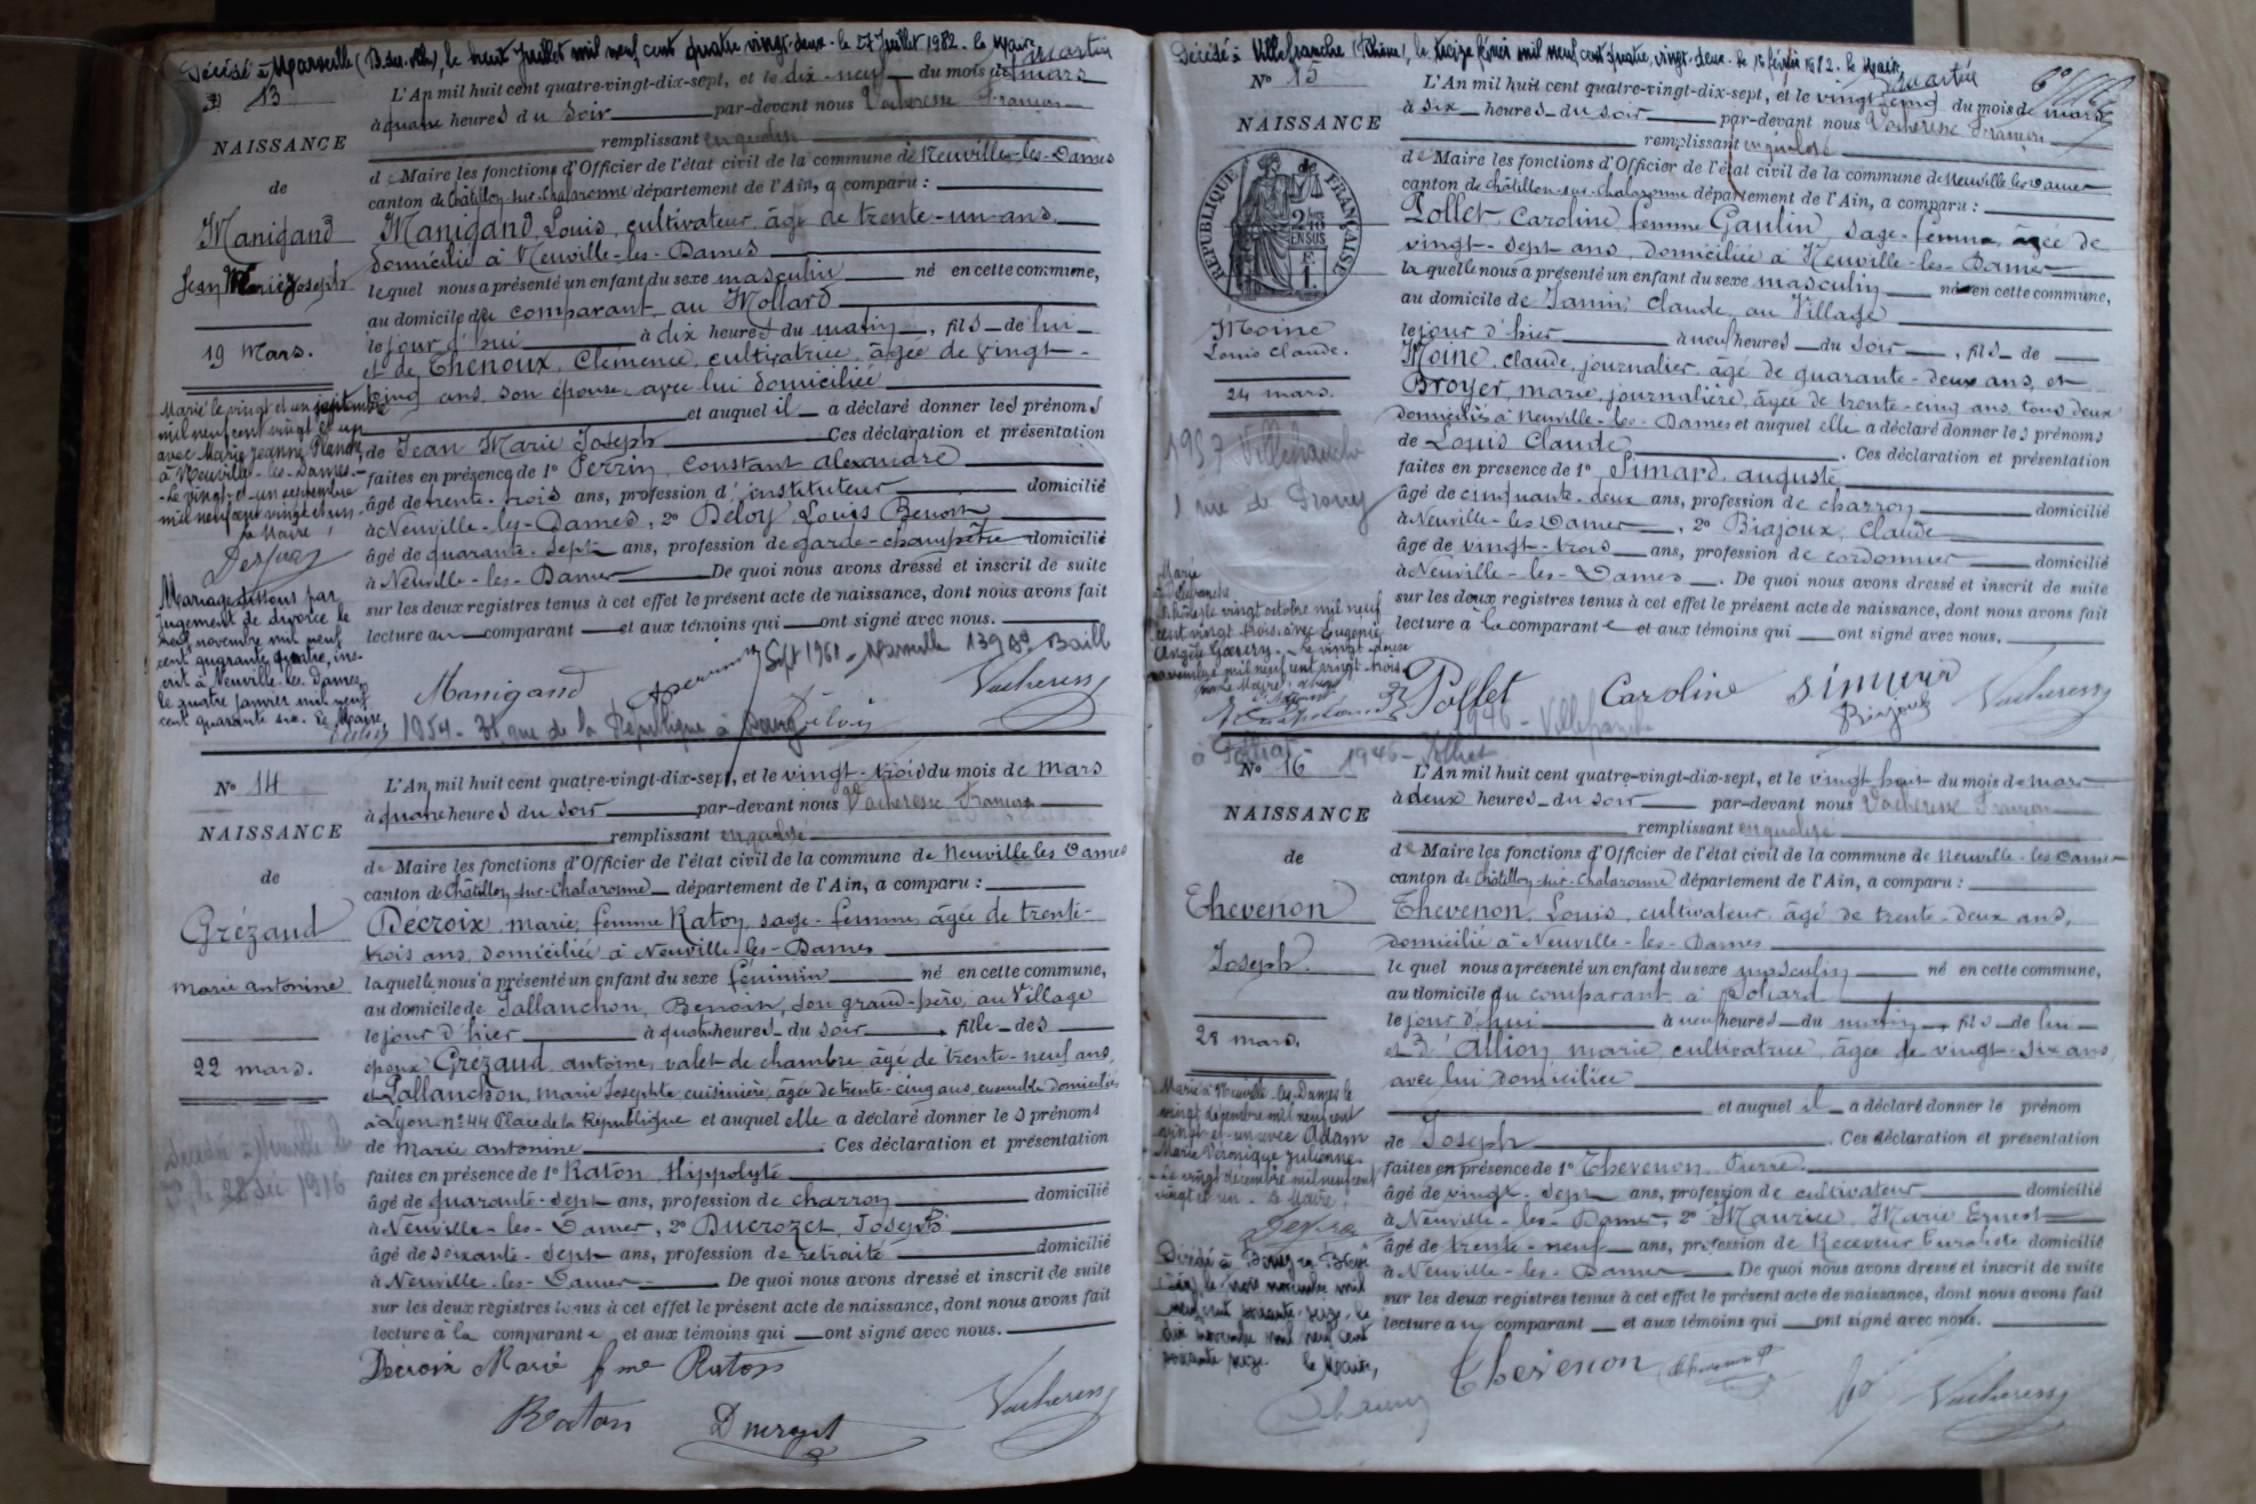 Décédé à Marseille (B. du Rh.), le huit Juillet mil neuf cent quatre vingt-deux - le 27 Juillet 1982. le Maire, Martin
13
NAISSANCE
de
Manigand
Jean Marie Joseph
19 Mars.
Marié le vingt et un septembre
mil neuf cent vingt et un
avec Marie Jeanne
à Neuville-les-Dames.-
- Le vingt-et-un septembre
mil neuf cent vingt et un
Le Maire,
Mariage dissous par
jugement de divorce le
novembre mil neuf
cent quarante quatre, ins-
crit à Neuville-les-Dames,
le quatre janvier mil neuf
cent quarante six. Le Maire,
L'An mil huit cent quatre-vingt-dix-sept, et le dix-neuf du mois de mars
à quatre heures du soir par-devant nous Vacheresse François
remplissant en qualité
de Maire les fonctions d'Officier de l'état civil de la commune de Neuville-les-Dames
canton de Châtillon-sur-Chalaronne département de l'Ain, a comparu :
Manigand, Louis, cultivateur, âgé de trente-un-ans,
domicilié à Neuville-les-Dames
lequel nous a présenté un enfant du sexe masculin né en cette commune,
au domicile du comparant, au Mollard
le jour d'hui à dix heures du matin, fils de lui
et de Thenoux, Clémence, cultivatrice, âgée de vingt-
cinq ans, son épouse, avec lui domiciliée
et auquel il a déclaré donner les prénoms
de Jean Marie Joseph Ces déclaration et présentation
faites en présence de 1° Perrin, Constant Alexandre
âgé de trente-trois ans, profession d'instituteur domicilié
à Neuville-les-Dames, 2° Deloy, Louis Benoit
âgé de quarante-sept ans, profession de garde-champêtre domicilié
à Neuville-les-Dames De quoi nous avons dressé et inscrit de suite
sur les deux registres tenus à cet effet le présent acte de naissance, dont nous avons fait
lecture au comparant et aux témoins qui ont signé avec nous.
Sept 1961 - Marseille 139 Bd Baill
Manigand Vacheresse
1954 - 31 rue de la République à Bourg
N° 14
NAISSANCE
de
Grézaud
Marie Antonine
22 mars.
Décédée à Neuville les
D, le 28 Déc 1916
L'An mil huit cent quatre-vingt-dix-sept, et le vingt-trois du mois de mars
à quatre heures du soir par-devant nous Vacheresse François
remplissant en qualité
de Maire les fonctions d'Officier de l'état civil de la commune de Neuville les Dames
canton de Châtillon-sur-Chalaronne département de l'Ain, a comparu :
Decroix, marie, femme Raton, sage-femme, âgée de trente-
trois ans, domiciliée à Neuville-les-Dames
laquelle nous a présenté un enfant du sexe féminin né en cette commune,
au domicile de Lallanchon, Benoit, son grand-père, au Village
le jour d'hier à quatre heures du soir, fille des
époux Grézaud, antoine, valet de chambre, âgé de trente-neuf ans,
et Lallanchon, marie Josephte, cuisinière, âgée de trente-cinq ans, ensemble domiciliés
à Lyon n° 44 Place de la République et auquel elle a déclaré donner les prénoms
de marie antonine. Ces déclaration et présentation
faites en présence de 1° Raton, Hippolyte
âgé de quarante-sept ans, profession de charron domicilié
à Neuville-les-Dames, 2° Ducrozet, Joseph
âgé de soixante-sept ans, profession de retraité domicilié
à Neuville-les-Dames De quoi nous avons dressé et inscrit de suite
sur les deux registres tenus à cet effet le présent acte de naissance, dont nous avons fait
lecture à la comparante et aux témoins qui ont signé avec nous.
Decroix Marie fme Raton
Raton Ducrozet Vacheresse
Décédé à Villefranche (Rhône), le treize février mil neuf cent quatre vingt-deux - le 16 février 1982. le Maire, Martin
N° 15
NAISSANCE
RÉPUBLIQUE FRANÇAISE
Moine
Louis Claude.
24 mars.
1957 Villefranche
1 rue de
Marié
à Villefranche
le vingt octobre mil neuf
cent vingt trois, avec Eugénie
Angèle
novembre mil neuf cent vingt trois
L'An mil huit cent quatre-vingt-dix-sept, et le vingt-cinq du mois de mars
à six heures du soir par-devant nous Vacheresse François
remplissant en qualité
de Maire les fonctions d'Officier de l'état civil de la commune de Neuville les Dames
canton de Châtillon-sur-Chalaronne département de l'Ain, a comparu :
Pollet, Caroline, femme Gaulin, sage-femme, âgée de
vingt-sept ans, domiciliée à Neuville-les-Dames
laquelle nous a présenté un enfant du sexe masculin né en cette commune,
au domicile de Janin, Claude, au Village
le jour d'hier à neuf heures du soir, fils de
Moine, claude, journalier, âgé de quarante-deux ans, et
Broyer, marie, journalière, âgée de trente-cinq ans, tous deux
domiciliés à Neuville-les-Dames et auquel elle a déclaré donner les prénoms
de Louis Claude. Ces déclaration et présentation
faites en présence de 1° Simard, auguste
âgé de cinquante-deux ans, profession de charron domicilié
à Neuville-les-Dames, 2° Biajoux, Claude
âgé de vingt-trois ans, profession de cordonnier domicilié
à Neuville-les-Dames. De quoi nous avons dressé et inscrit de suite
sur les deux registres tenus à cet effet le présent acte de naissance, dont nous avons fait
lecture à la comparante et aux témoins qui ont signé avec nous.
Pollet Caroline Simard Biajoux Vacheresse
1946 - Villefranche
N° 16
NAISSANCE
de
Thevenon
Joseph.
28 mars.
Marié à Neuville-les-Dames le
vingt décembre mil neuf cent
vingt-et-un avec Adam
Marie Véronique Julienne.
- Le vingt décembre mil neuf cent
vingt et un. Le Maire,
Décédé à Bourg en Bresse
(Ain), le trois novembre mil
neuf cent soixante-seize. le
dix novembre mil neuf cent
soixante seize. le Maire,
L'An mil huit cent quatre-vingt-dix-sept, et le vingt-huit du mois de mars
à deux heures du soir par-devant nous Vacheresse François
remplissant en qualité
de Maire les fonctions d'Officier de l'état civil de la commune de Neuville-les-Dames
canton de Châtillon-sur-Chalaronne département de l'Ain, a comparu :
Thevenon, Louis, cultivateur, âgé de trente-deux ans,
domicilié à Neuville-les-Dames
lequel nous a présenté un enfant du sexe masculin né en cette commune,
au domicile du comparant, à
le jour d'hui à neuf heures du matin, fils de lui
et d'Allion, marie, cultivatrice, âgée de vingt-six ans,
avec lui domiciliée
et auquel il a déclaré donner le prénom
de Joseph. Ces déclaration et présentation
faites en présence de 1° Thevenon, Pierre.
âgé de vingt-sept ans, profession de cultivateur domicilié
à Neuville-les-Dames, 2° Maurice, Marie Ernest
âgé de trente-neuf ans, profession de Receveur buraliste domicilié
à Neuville-les-Dames De quoi nous avons dressé et inscrit de suite
sur les deux registres tenus à cet effet le présent acte de naissance, dont nous avons fait
lecture au comparant et aux témoins qui ont signé avec nous.
Thevenon Vacheresse